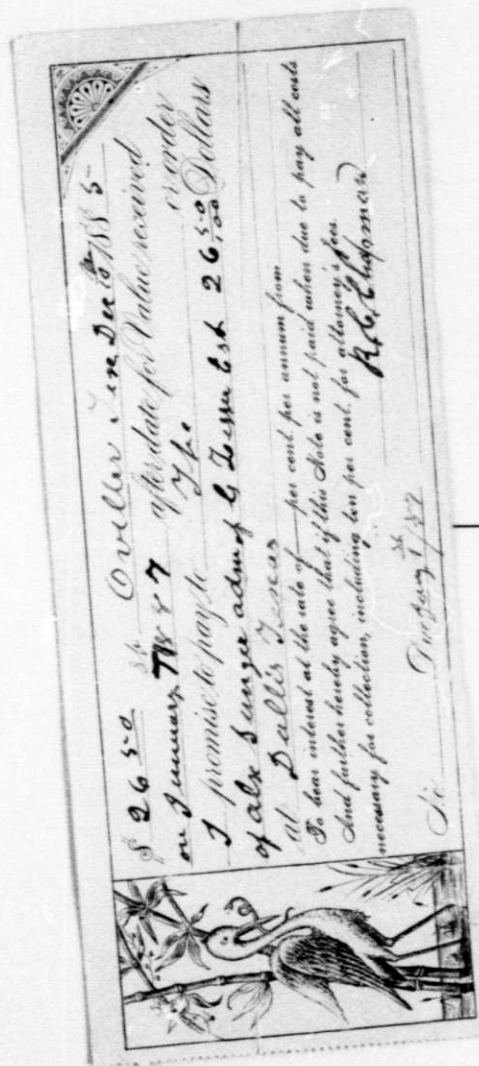 $ 26 50 Oviller Tex Dec 10th 1885
on January 1st 1887 after date for Value received
I promise to pay to The or order
of Alx Sanger adm of G Est 26 50/100 Dollars
at Dallis Texas
To bear interest at the rate of per cent. per annum from
And further hereby agree that if this Note is not paid when due to pay all costs
necessary for collection, including ten per cent. for attorney's fees.
No Due Jany 1st/87 R. C. Chapman